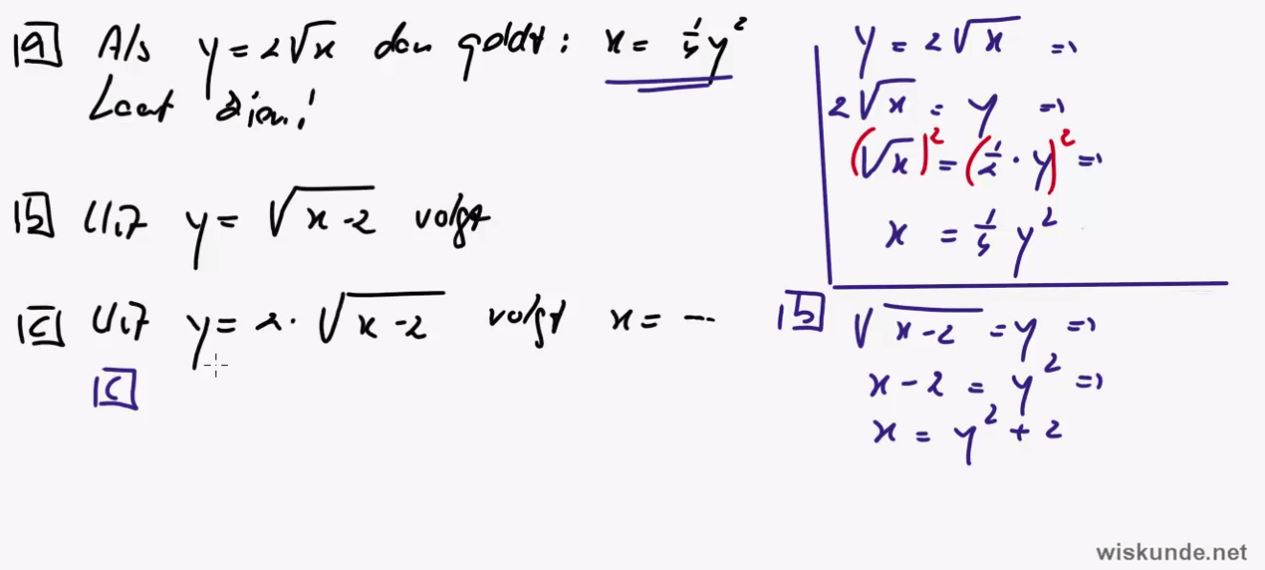 a Als y = 2√x dan geldt: x = ¼y²
Laat zien!
b Uit y = √(x-2) volgt
c Uit y = 2·√(x-2) volgt x = ...
c
y = 2√x ⇒
2√x = y ⇒
(√x)² = (½·y)² ⇒
x = ¼y²
b √(x-2) = y ⇒
x-2 = y² ⇒
x = y² + 2
wiskunde.net